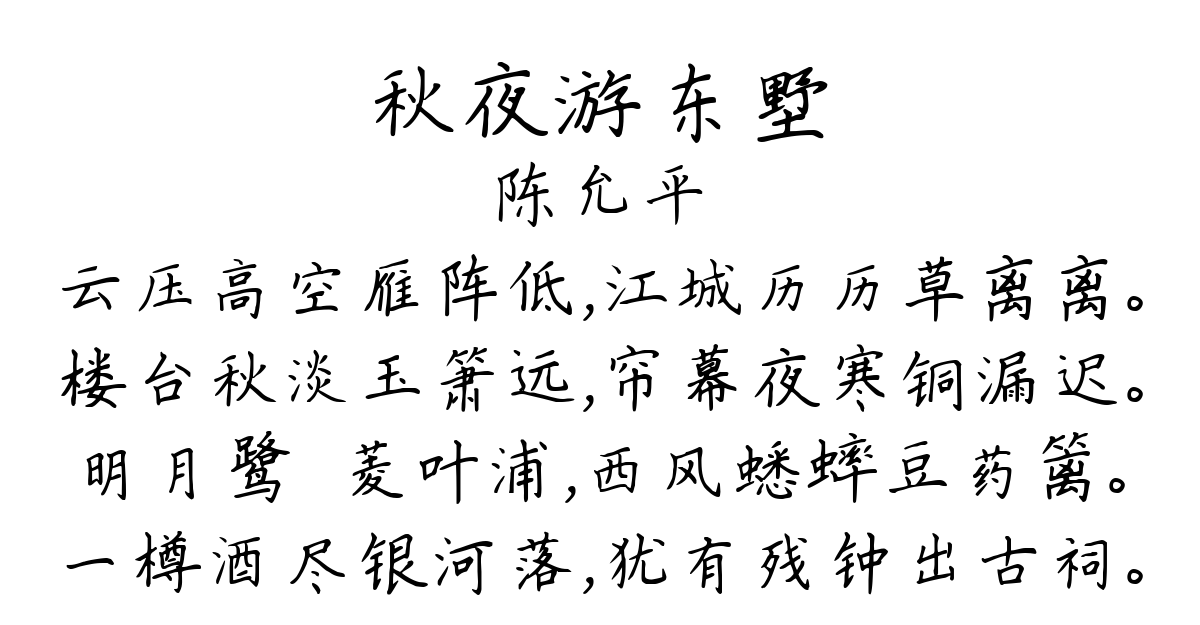 秋夜游东墅
陈允平
云压高空雁阵低,江城历历草离离。
楼台秋淡玉箫远,帘幕夜寒铜漏迟。
明月鹭 菱叶浦,西风蟋蟀豆药篱。
一樽酒尽银河落,犹有残钟出古祠。